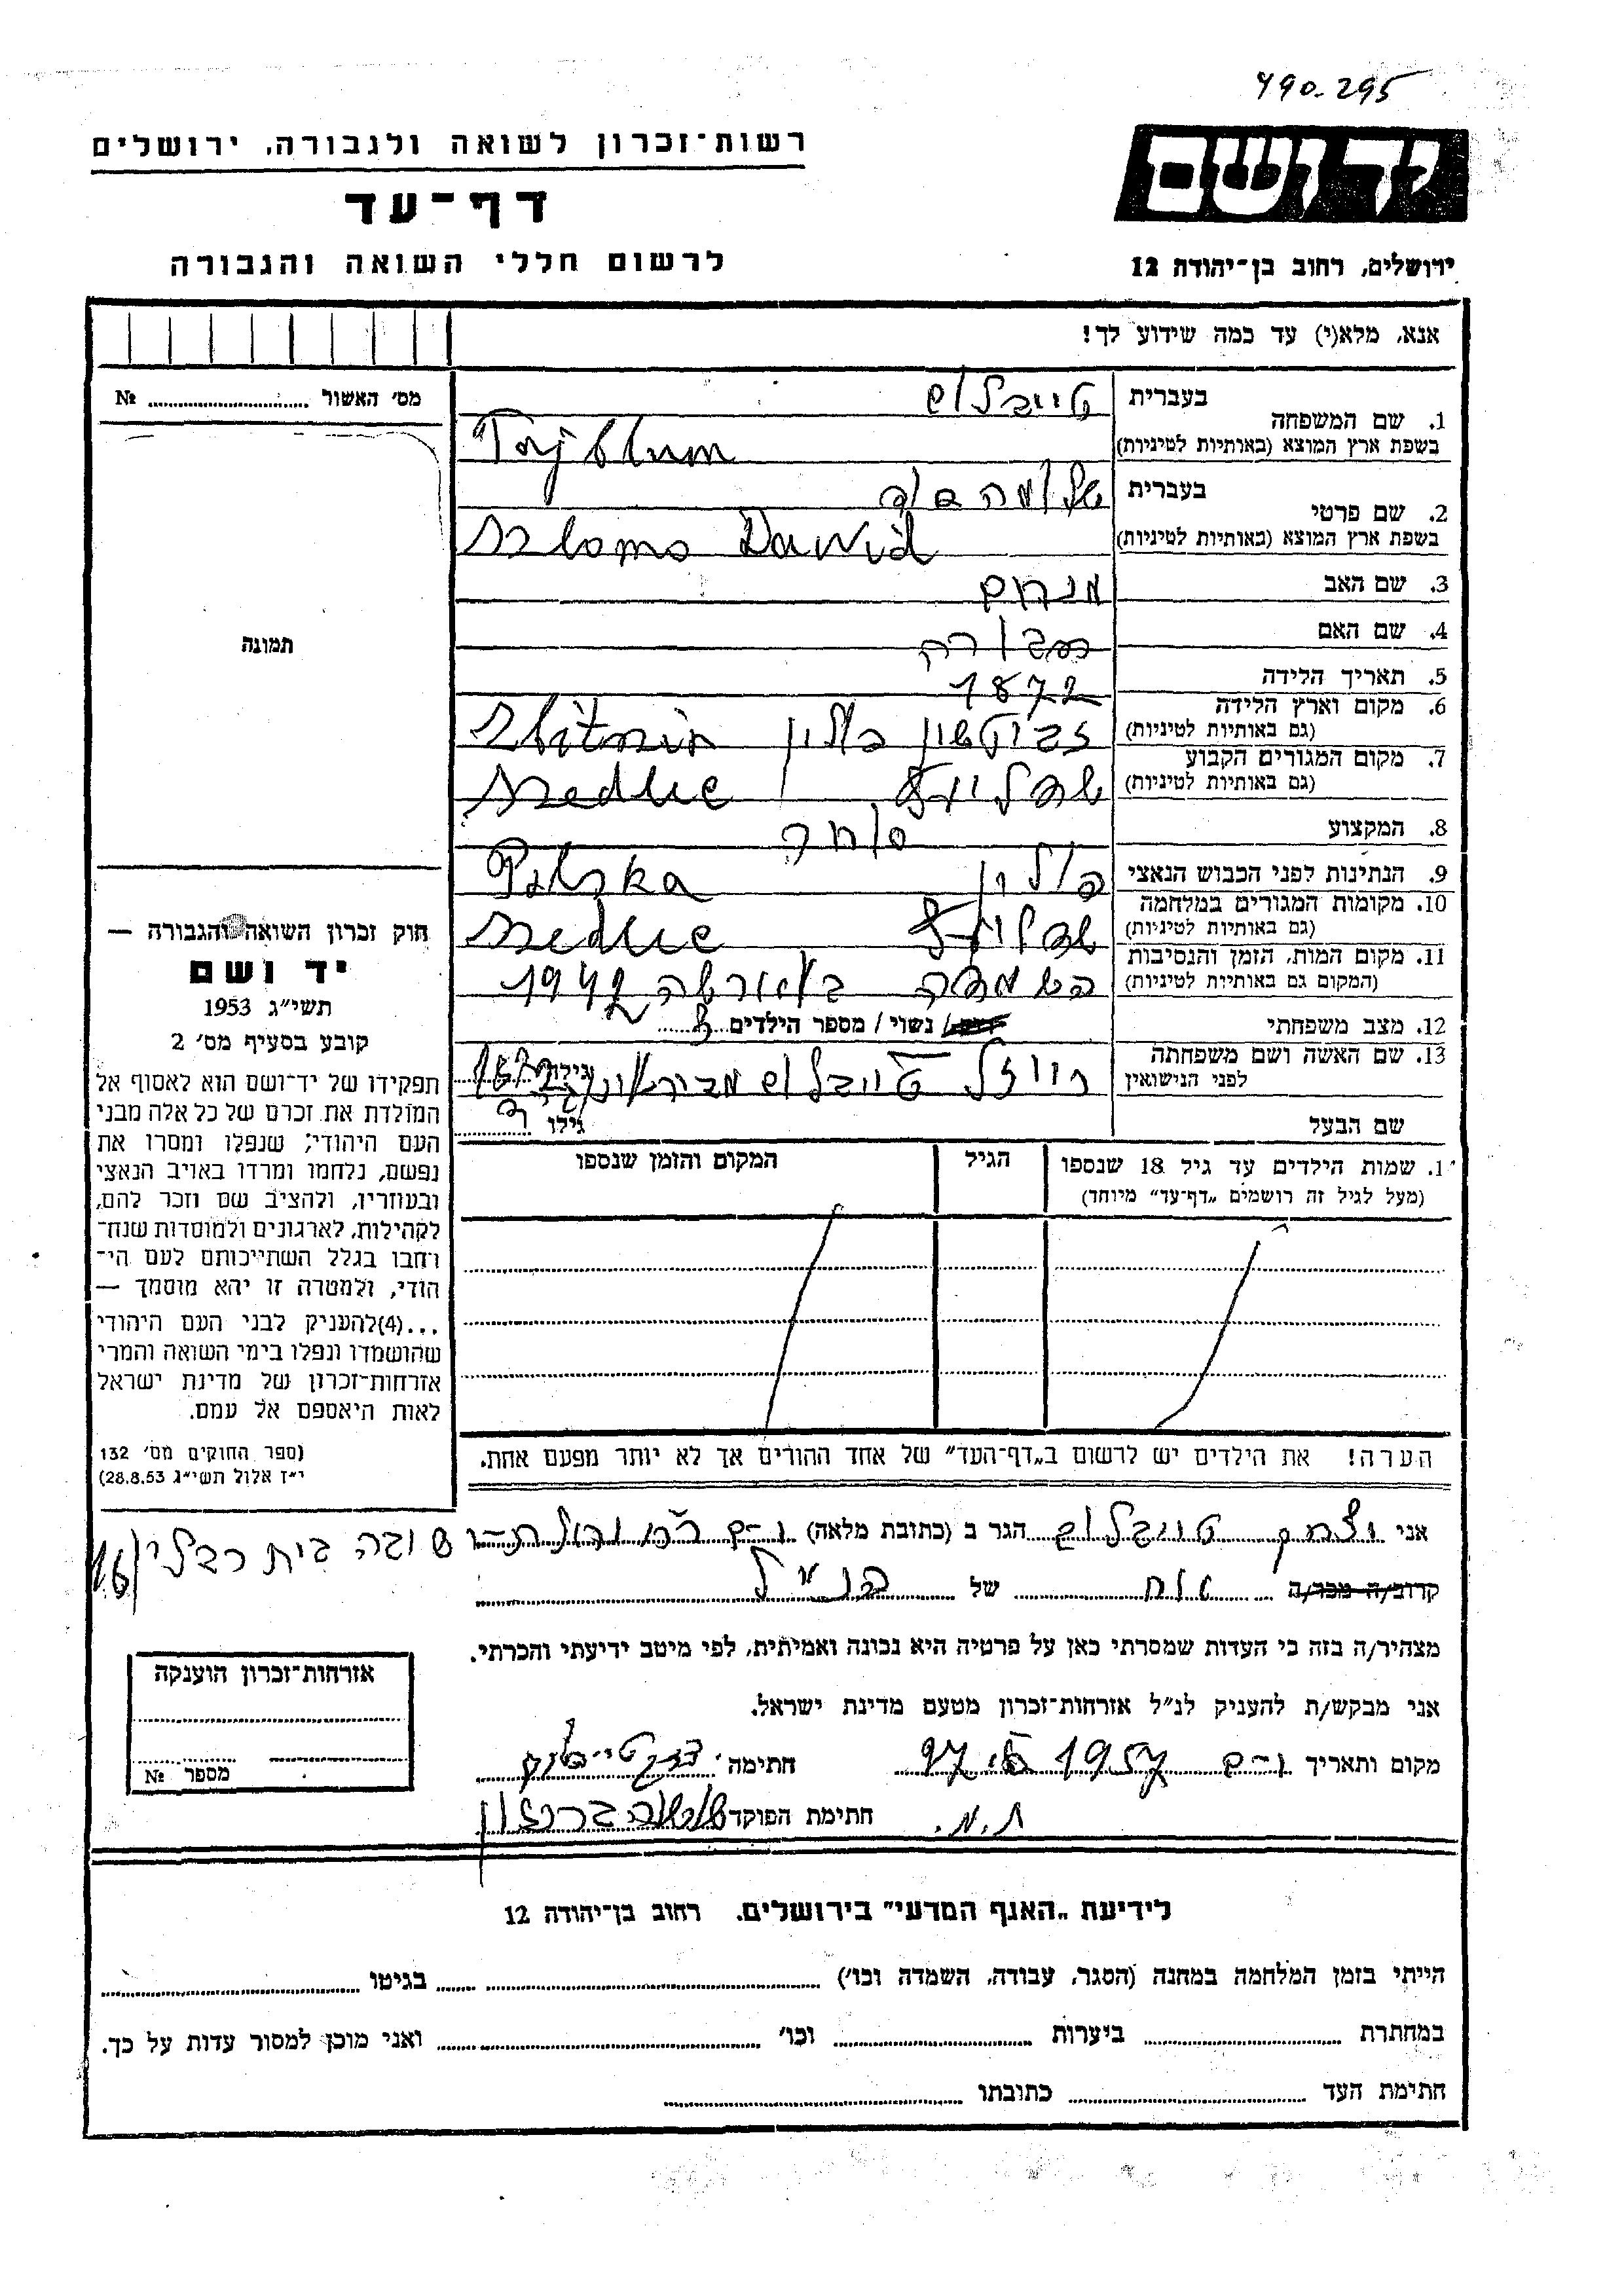 490.295
רשות־זכרון לשואה ולגבורה, ירושלים
יד ושם
דף־עד
לרשום חללי השואה והגבורה
ירושלים, רחוב בן־יהודה 12
אנא, מלא(י) עד כמה שידוע לך!
מס׳ האשור № 
1. שם המשפחה בעברית טייבלום
בשפת ארץ המוצא (באותיות לטיניות) Tajblum
2. שם פרטי בעברית שלמה דוד
בשפת ארץ המוצא (באותיות לטיניות) Szlomo Dawid
3. שם האב מנחם
4. שם האם
5. תאריך הלידה 1872
6. מקום וארץ הלידה
(גם באותיות לטיניות) פולין
7. מקום המגורים הקבוע
(גם באותיות לטיניות) שדליץ Szedlic
8. המקצוע סוחר
9. הנתינות לפני הכבוש הנאצי פולין Polska
10. מקומות המגורים במלחמה
(גם באותיות לטיניות) שדליץ Szedlic
11. מקום המות, הזמן והנסיבות
(המקום גם באותיות לטיניות) 1942
12. מצב משפחתי נשוי / מספר הילדים
13. שם האשה ושם משפחתה
לפני הנישואין טייבלום גילה
שם הבעל גילו
תמונה
חוק זכרון השואה והגבורה —
יד ושם
תשי״ג 1953
קובע בסעיף מס׳ 2
תפקידו של יד־ושם הוא לאסוף אל
המולדת את זכרם של כל אלה מבני
העם היהודי, שנפלו ומסרו את
נפשם, נלחמו ומרדו באויב הנאצי
ובעוזריו, ולהציב שם וזכר להם,
לקהילות, לארגונים ולמוסדות שנח־
רבו בגלל השתייכותם לעם הי־
הודי, ולמטרה זו יהא מוסמך —
...(4)להעניק לבני העם היהודי
שהושמדו ונפלו בימי השואה והמרי
אזרחות־זכרון של מדינת ישראל
לאות היאספם אל עמם.
(ספר החוקים מס׳ 132
י״ז אלול תשי״ג 28.8.53)
1. שמות הילדים עד גיל 18 שנספו
(מעל לגיל זה רושמים „דף־עד״ מיוחד)
הגיל
המקום והזמן שנספו
הערה! את הילדים יש לרשום ב„דף־העד״ של אחד ההורים אך לא יותר מפעם אחת.
אני יצחק טייבלום הגר ב (כתובת מלאה)
קרוב/ה מכר/ה של הנ״ל
מצהיר/ה בזה כי העדות שמסרתי כאן על פרטיה היא נכונה ואמיתית, לפי מיטב ידיעתי והכרתי.
אני מבקש/ת להעניק לנ״ל אזרחות־זכרון מטעם מדינת ישראל.
מקום ותאריך 1957 חתימה
חתימת הפוקד
אזרחות־זכרון הוענקה
מספר №
לידיעת „האגף המדעי״ בירושלים, רחוב בן־יהודה 12
הייתי בזמן המלחמה במחנה (הסגר, עבודה, השמדה וכו׳) בגיטו
במחתרת ביערות וכו׳ ואני מוכן למסור עדות על כך.
חתימת העד כתובתו